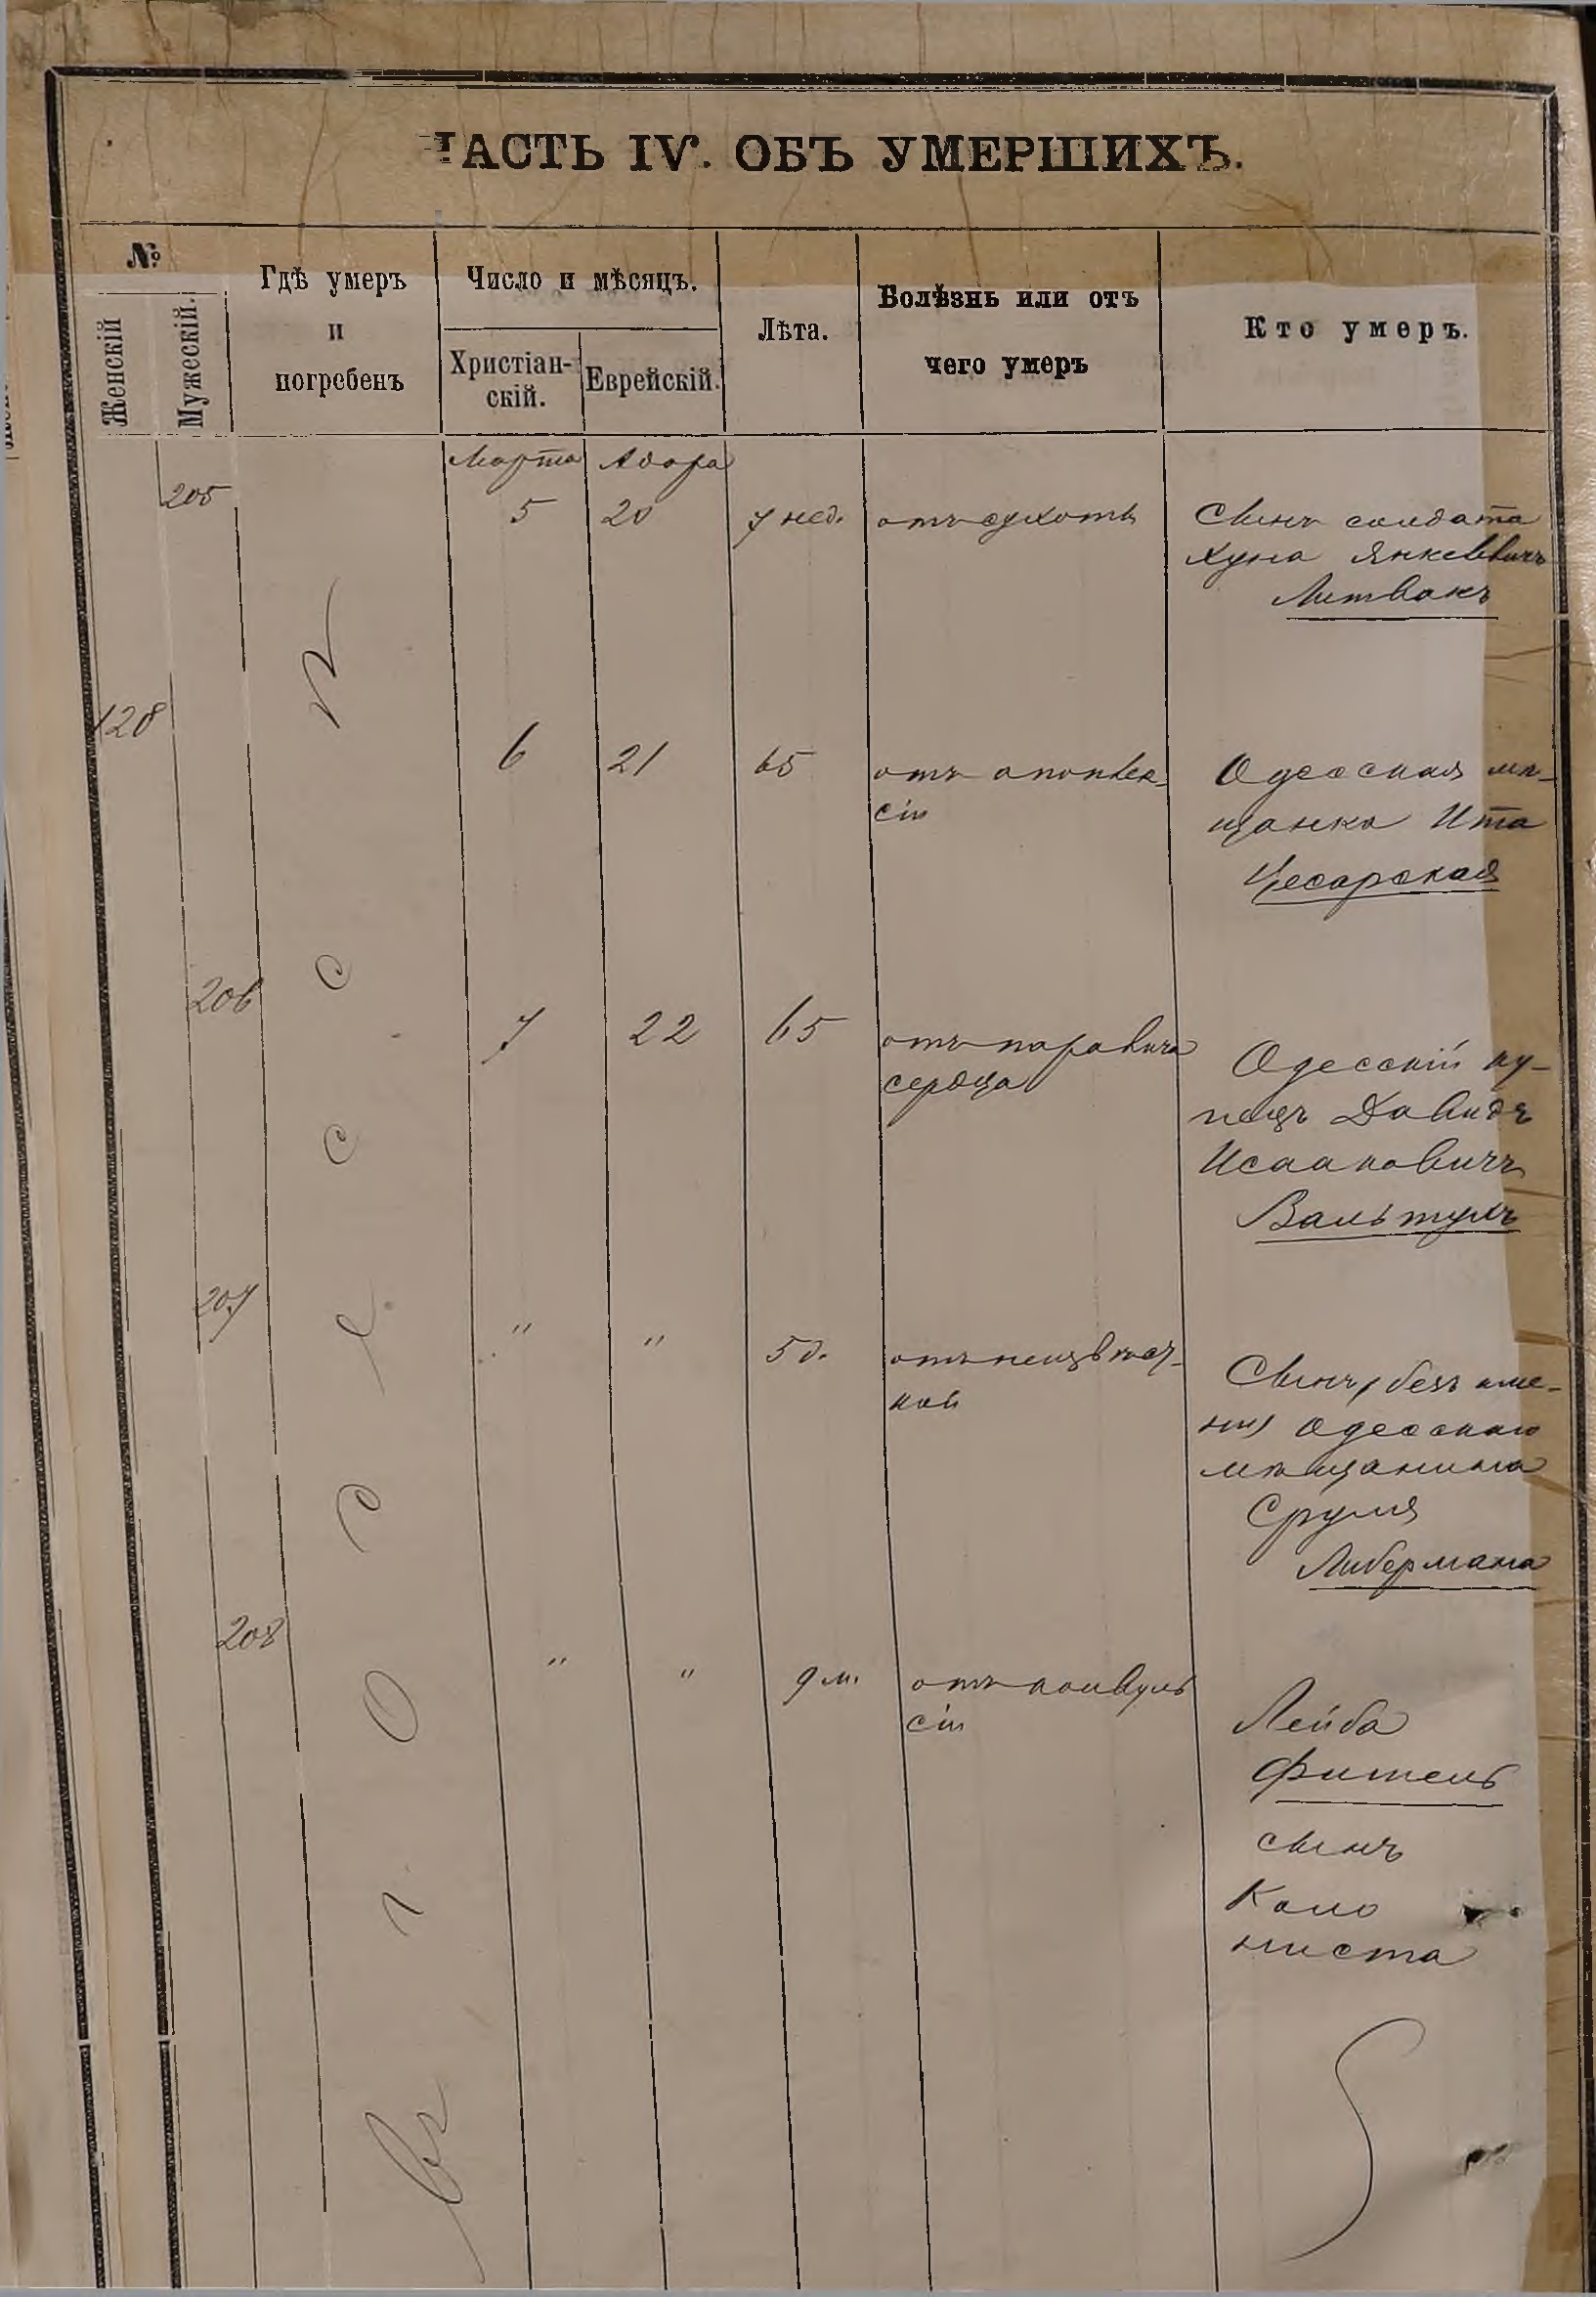 ЧАСТЬ IV. ОБЪ УМЕРШИХЪ.
№
Женскій
Мужескій.
Гдѣ умеръ
и
погребенъ
Число и мѣсяцъ.
Христіан-
скій.
Еврейскій.
Лѣта.
Болѣзнь или отъ
чего умеръ
Кто умеръ.
Марта Адара
205 5 20 7 нед. отъ сухоты Сынъ солдата
Хуна Янкелевичъ
Литвакъ
128 6 21 65 отъ апоплек-
сіи
Одесская мѣ-
щанка Ита
Цесарская
206 7 22 65 отъ паралича
сердца
Одесскій ку-
пецъ Давидъ
Исааковичъ
Вальтухъ
207 " " 5 д. отъ неизвѣст-
ной
Сынъ, безъ име-
ни, Одесскаго
мѣщанина
Сруля
Либермана
208 " " 9 м. отъ конвуль
сіи
Лейба
Фитель
сынъ
Коло
ниста
Въ г. Одессѣ